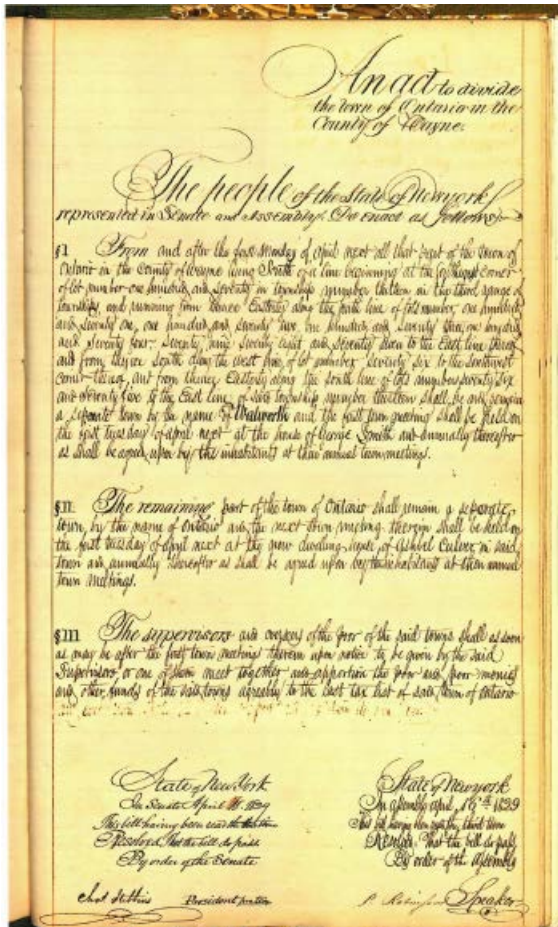 An act to divide
the town of Ontario in the
County of Wayne.
The people of the State of Newyork
represented in Senate and Assembly, Do enact as follows:
§I From and after the first Monday of april next all that part of the town of
Ontario in the County of Wayne lying South of a line beginning at the corner
of lot number one hundred and seventy in township number thirteen in the third range of
townships, and running from thence Easterly along the south line of lots number one hundred
and seventy one, one hundred and seventy two, one hundred and seventy three, one hundred
and seventy four, seventy nine seventy eight and seventy seven to the East line thereof
and from thence south along the west line of lot number seventy six to the southwest
corner thereof, and from thence Easterly along the south line of lots number seventy six
and seventy five to the East line of said township number thirteen shall be and remain
a separate town by the name of Walworth and the first town meeting shall be held on
the first tuesday of april next at the house of George Smith and annually thereafter
as shall be agreed upon by the inhabitants at their annual town meetings.
§II. The remaining part of the town of Ontario shall remain a separate
town, by the name of Ontario and the next town meeting therein shall be held on
the first tuesday of april next at the now dwelling house of Ashbel Culver in said
town and annually thereafter as shall be agreed upon by the inhabitants at their annual
town meetings.
§III The supervisors and overseers of the poor of the said towns shall as soon
as may be after the first town meetings therein upon notice to be given by the said
Supervisors or one of them meet together and apportion the poor and poor monies
and other funds of the said towns agreeably to the last tax list of said town of Ontario
State of New York
In Senate April 1829
This bill having been read the third time
Resolved, That the bill do pass
By order of the Senate
President protem
State of Newyork
In assembly april 16th 1829
This bill having been read the third time
Resolved, That the bill do pass
By order of the Assembly
Speaker